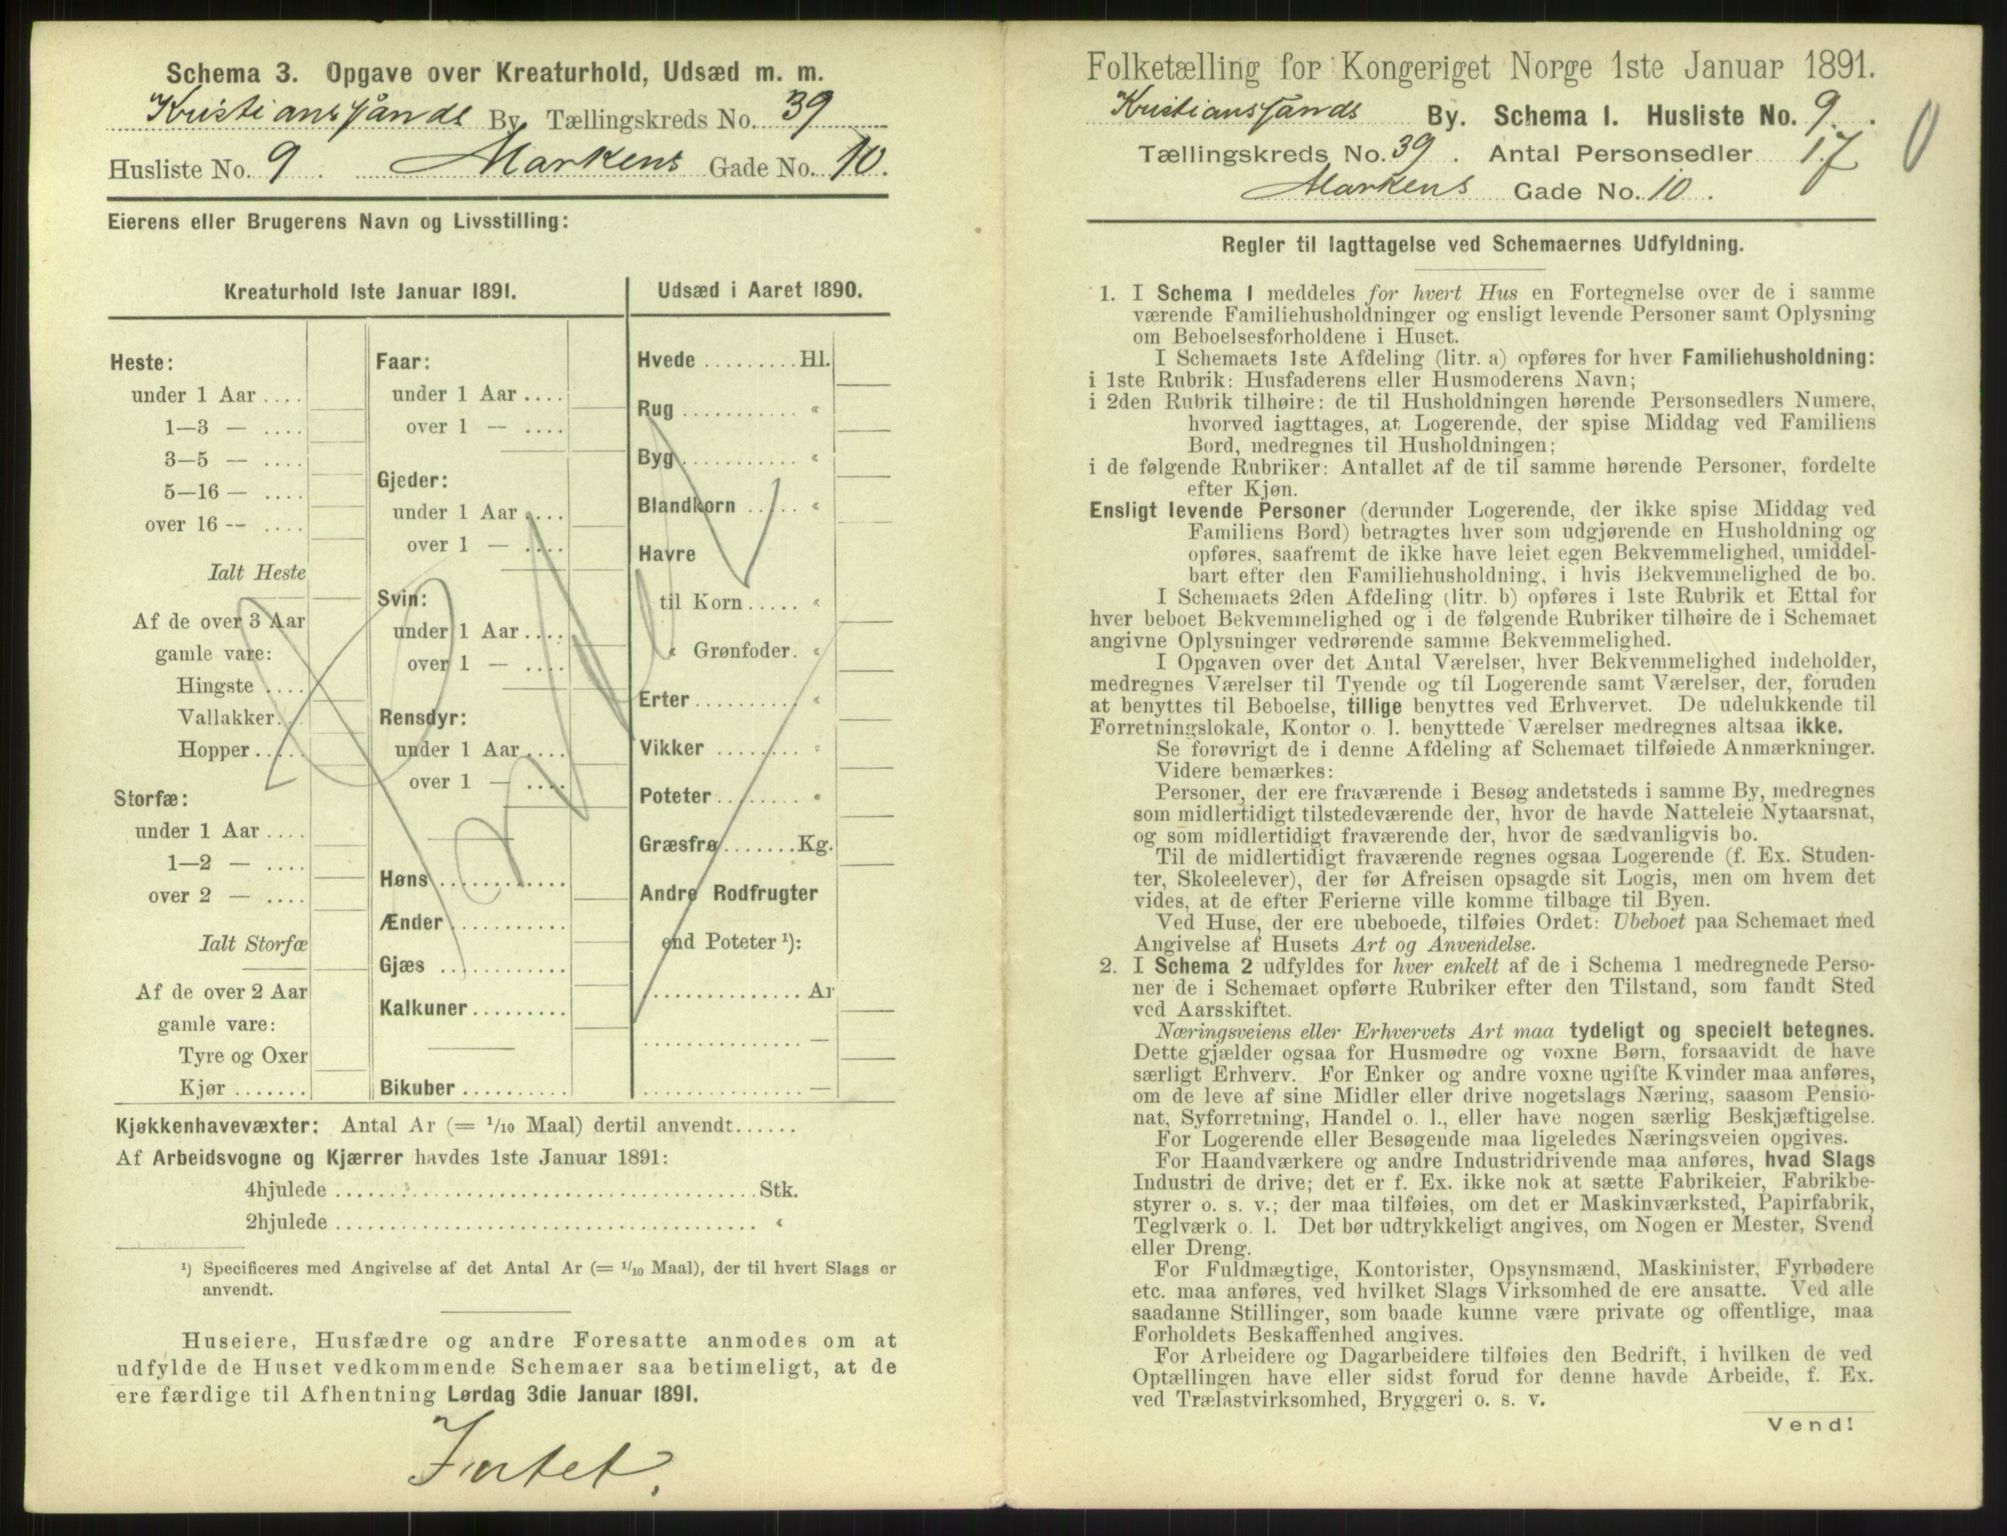 Schema 3. Opgave over Kreaturhold, Udsæd m. m.
Kristianssands By Tællingskreds No. 39
Husliste No. 9 . Markens Gade No. 10.
Eierens eller Brugerens Navn og Livsstilling:
Kreaturhold 1ste Januar 1891.
Heste:
under 1 Aar ....
1—3 — ....
3—5 — ....
5—16 — ....
over 16 -- ....
Ialt Heste
Af de over 3 Aar
gamle vare:
Hingste ....
Vallakker...
Hopper ....
Storfæ:
under 1 Aar ....
1—2 — ....
over 2 — ....
Ialt Storfæ
Af de over 2 Aar
gamle vare:
Tyre og Oxer
Kjør .......
Faar:
under 1 Aar ....
over 1 — ....
Gjeder:
under 1 Aar ....
over 1 — ....
Svin:
under 1 Aar ....
over 1 — ....
Rensdyr:
under 1 Aar ....
over 1 — ....
Høns ............
Ænder ..........
Gjæs ............
Kalkuner .........
Bikuber ..........
Udsæd i Aaret 1890.
Hvede ......... Hl.
Rug ........... «
Byg ........... «
Blandkorn ..... «
Havre
til Korn ..... «
« Grønfoder. «
Erter .......... «
Vikker ........ «
Poteter ........ «
Græsfrø ....... Kg.
Andre Rodfrugter
end Poteter ¹):
............... Ar
............... —
............... —
Kjøkkenhavevæxter: Antal Ar (= 1/10 Maal) dertil anvendt......
Af Arbeidsvogne og Kjærrer havdes 1ste Januar 1891:
4hjulede ....................................... Stk.
2hjulede ....................................... «
¹) Specificeres med Angivelse af det Antal Ar (= 1/10 Maal), der til hvert Slags er
anvendt.
Huseiere, Husfædre og andre Foresatte anmodes om at
udfylde de Huset vedkommende Schemaer saa betimeligt, at de
ere færdige til Afhentning Lørdag 3die Januar 1891.
Intet.
Folketælling for Kongeriget Norge 1ste Januar 1891.
Kristianssands By. Schema 1. Husliste No. 9.
Tællingskreds No. 39 . Antal Personsedler 17
Markens Gade No. 10 .
0
Regler til Iagttagelse ved Schemaernes Udfyldning.
1. I Schema 1 meddeles for hvert Hus en Fortegnelse over de i samme
værende Familiehusholdninger og ensligt levende Personer samt Oplysning
om Beboelsesforholdene i Huset.
I Schemaets 1ste Afdeling (litr. a) opføres for hver Familiehusholdning:
i 1ste Rubrik: Husfaderens eller Husmoderens Navn;
i 2den Rubrik tilhøire: de til Husholdningen hørende Personsedlers Numere,
hvorved iagttages, at Logerende, der spise Middag ved Familiens
Bord, medregnes til Husholdningen;
i de følgende Rubriker: Antallet af de til samme hørende Personer, fordelte
efter Kjøn.
Ensligt levende Personer (derunder Logerende, der ikke spise Middag ved
Familiens Bord) betragtes hver som udgjørende en Husholdning og
opføres, saafremt de ikke have leiet egen Bekvemmelighed, umiddel-
bart efter den Familiehusholdning, i hvis Bekvemmelighed de bo.
I Schemaets 2den Afdeling (litr. b) opføres i 1ste Rubrik et Ettal for
hver beboet Bekvemmelighed og i de følgende Rubriker tilhøire de i Schemaet
angivne Oplysninger vedrørende samme Bekvemmelighed.
I Opgaven over det Antal Værelser, hver Bekvemmelighed indeholder,
medregnes Værelser til Tyende og til Logerende samt Værelser, der, foruden
at benyttes til Beboelse, tillige benyttes ved Erhvervet. De udelukkende til
Forretningslokale, Kontor o. l. benyttede Værelser medregnes altsaa ikke.
Se forøvrigt de i denne Afdeling af Schemaet tilføiede Anmærkninger.
Videre bemærkes:
Personer, der ere fraværende i Besøg andetsteds i samme By, medregnes
som midlertidigt tilstedeværende der, hvor de havde Natteleie Nytaarsnat,
og som midlertidigt fraværende der, hvor de sædvanligvis bo.
Til de midlertidigt fraværende regnes ogsaa Logerende (f. Ex. Studen-
ter, Skoleelever), der før Afreisen opsagde sit Logis, men om hvem det
vides, at de efter Ferierne ville komme tilbage til Byen.
Ved Huse, der ere ubeboede, tilføies Ordet: Ubeboet paa Schemaet med
Angivelse af Husets Art og Anvendelse.
2. I Schema 2 udfyldes for hver enkelt af de i Schema 1 medregnede Perso-
ner de i Schemaet opførte Rubriker efter den Tilstand, som fandt Sted
ved Aarsskiftet.
Næringsveiens eller Erhvervets Art maa tydeligt og specielt betegnes.
Dette gjælder ogsaa for Husmødre og voxne Børn, forsaavidt de have
særligt Erhverv. For Enker og andre voxne ugifte Kvinder maa anføres,
om de leve af sine Midler eller drive nogetslags Næring, saasom Pensio-
nat, Syforretning, Handel o. l., eller have nogen særlig Beskjæftigelse.
For Logerende eller Besøgende maa ligeledes Næringsveien opgives.
For Haandværkere og andre Industridrivende maa anføres, hvad Slags
Industri de drive; det er f. Ex. ikke nok at sætte Fabrikeier, Fabrikbe-
styrer o. s. v.; der maa tilføies, om det er Maskinværksted, Papirfabrik,
Teglværk o. l. Det bør udtrykkeligt angives, om Nogen er Mester, Svend
eller Dreng.
For Fuldmægtige, Kontorister, Opsynsmænd, Maskinister, Fyrbødere
etc. maa anføres, ved hvilket Slags Virksomhed de ere ansatte. Ved alle
saadanne Stillinger, som baade kunne være private og offentlige, maa
Forholdets Beskaffenhed angives.
For Arbeidere og Dagarbeidere tilføies den Bedrift, i hvilken de ved
Optællingen have eller sidst forud for denne havde Arbeide, f. Ex.
ved Trælastvirksomhed, Bryggeri o. s. v.
Vend!